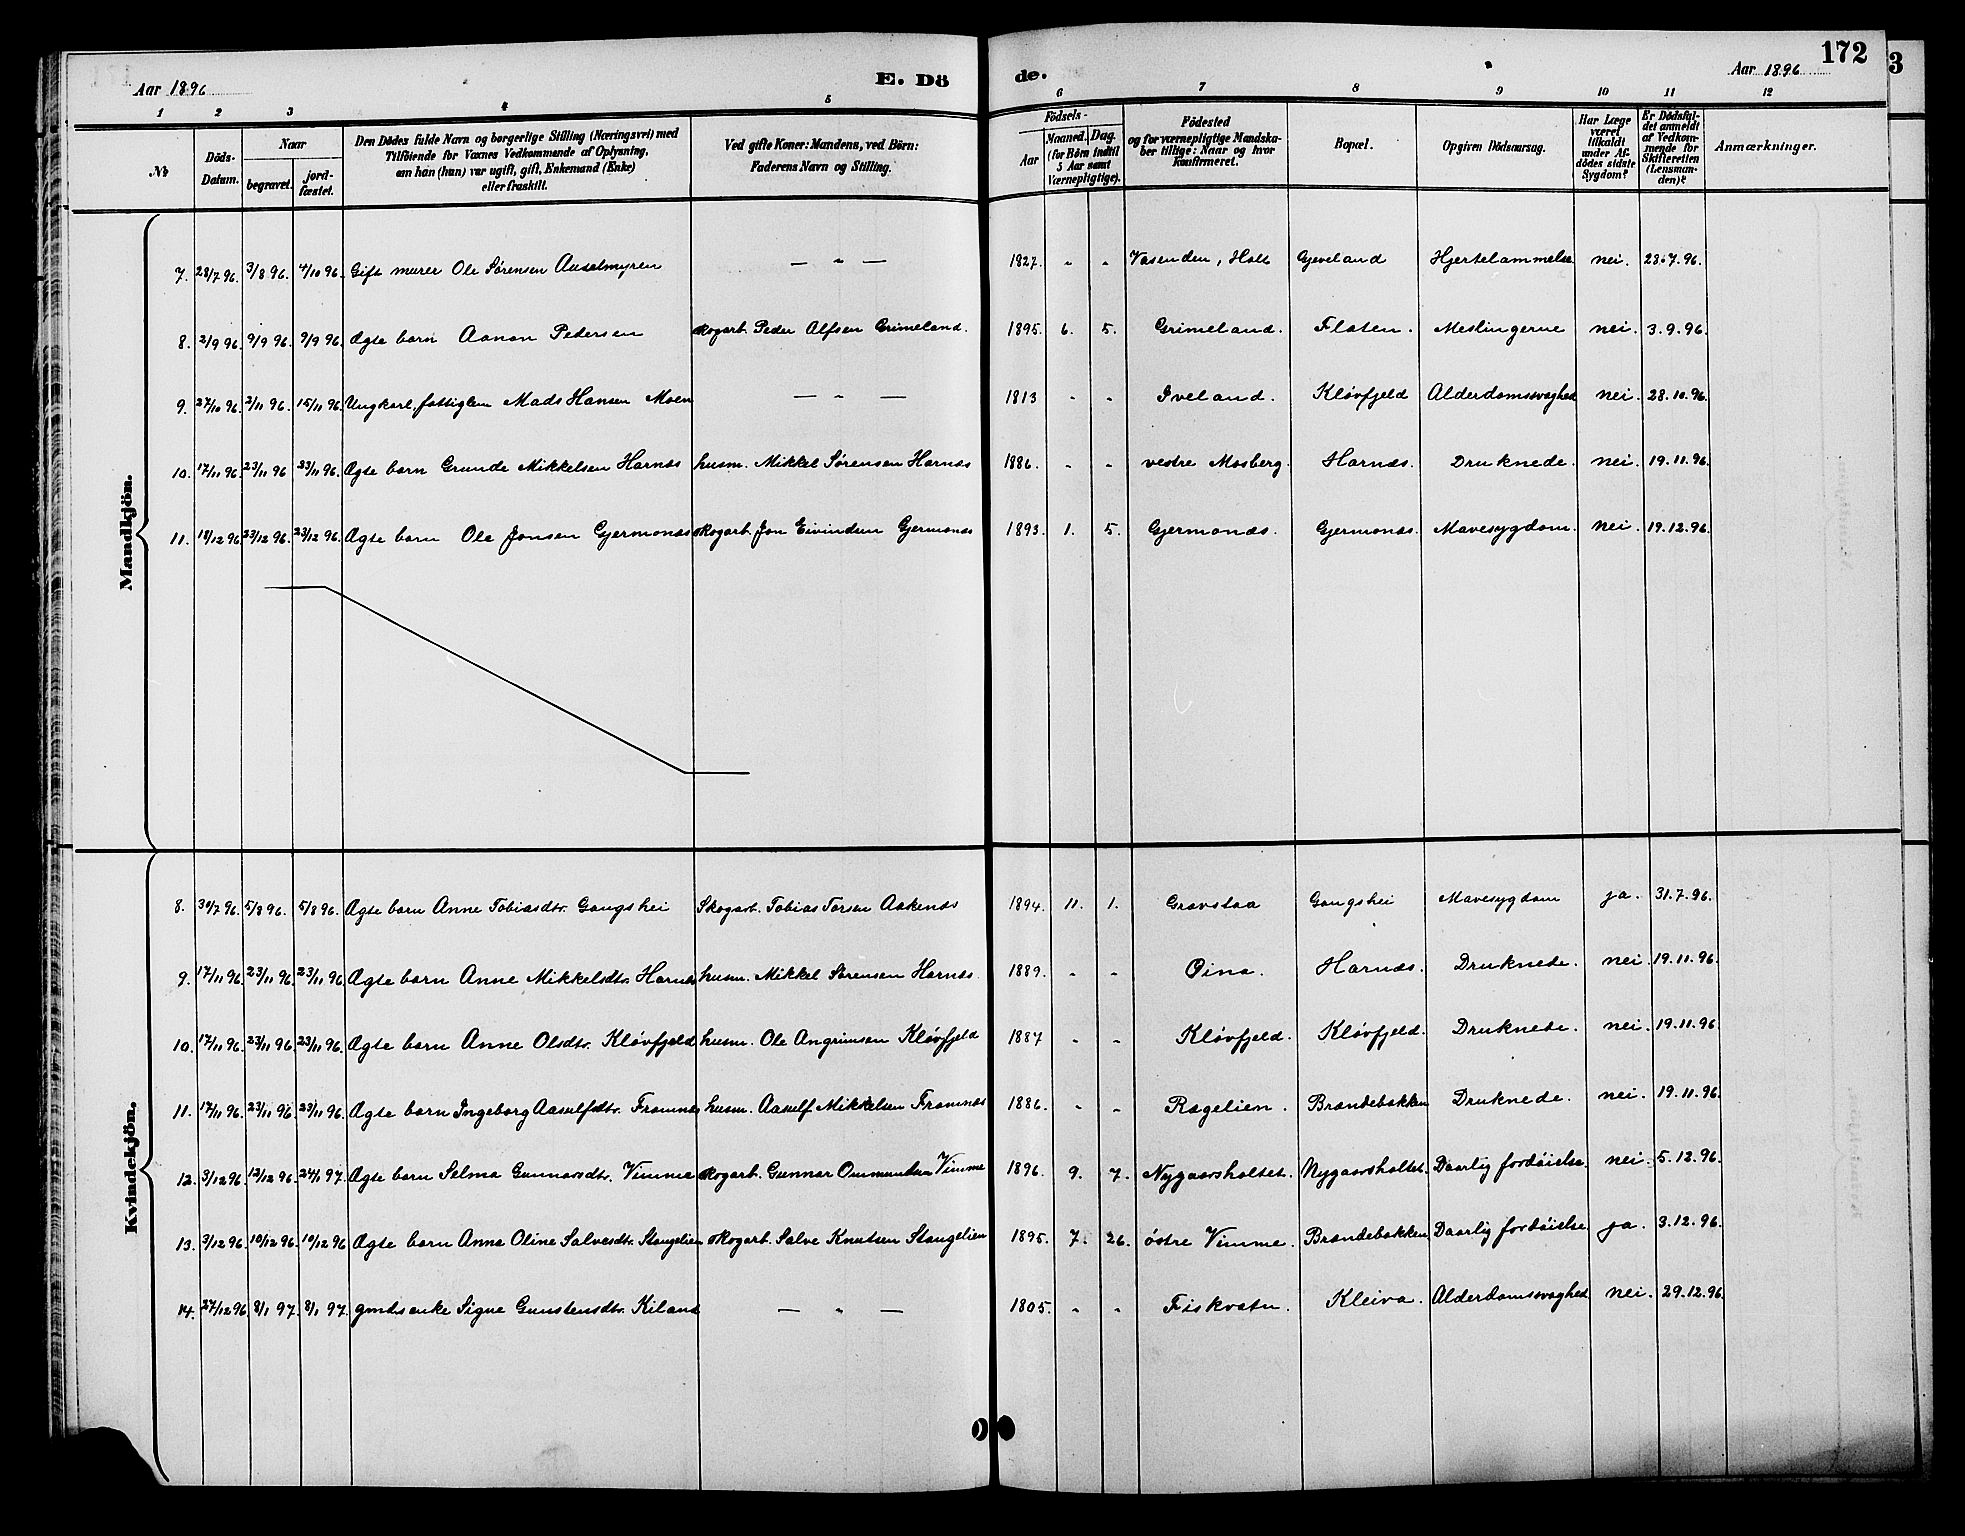 172
3
Aar 1896
E. Dö
de.
Aar 1896
1 2 3 4 5 6 7 8 9 10 11 12
№
Döds-Datum.
Naar
begravet.
jordfæstet.
Den Dödes fulde Navn og borgerlige Stilling (Næringsvei) med
Tilföiende for Voxnes Vedkommende af Oplysning,
om han (hun) var ugift, gift, Enkemand (Enke)
eller fraskilt.
Ved gifte Koner: Mandens, ved Börn:
Faderens Navn og Stilling.
Födsels-
Aar
Maaned. Dag.
(for Börn indtil
5 Aar samt
Værnepligtige).
Födested
og for værnepligtige Mandskaber
tillige: Naar og hvor
Konfirmeret.
Bopæl.
Opgiven Dödsaarsag.
Har Læge
været
tilkaldt
under Afdödes
sidste
Sygdom?
Er Dödsfaldet
anmeldt
af Vedkommende
for
Skifteretten
(Lensmanden)?
Anmærkninger.
Mandkjön.
7. 28/7 96. 3/8 96. 4/10 96. Gift murer Ole Sørensen Auselmyren — " — 1827. " " Vasenden, Holt Gjeveland Hjertelammelse nei. 28.7.96.
8. 2/9 96. 9/9 96. 9/9 96. Ægte barn Aanon Pedersen skogarb. Peder Alfsen Grimeland. 1895. 6. 5. Grimeland. Flaten. Meslingerne nei. 3.9.96.
9. 27/10 96. 2/11 96. 15/11 96. Ungkarl, fattiglem Mads Hansen Moen — " — 1813 " " Iveland. Kløvfjeld Alderdomssvaghed nei. 28.10.96.
10. 17/11 96. 23/11 96 23/11 96. Ægte barn Grunde Mikkelsen Harnæs husm. Mikkel Sørensen Harnæs 1886. " " vestre Mosberg. Harnæs. Druknede. nei. 19.11.96.
11. 18/12 96. 23/12 96. 23/12 96. Ægte barn Ole Jonsen Gjermonæs skogarb. Jon Eivindsen Gjermonæs 1893. 1. 5. Gjermonæs. Gjermonæs. Mavesygdom. nei. 19.12.96.
Kvindekjön.
8. 30/7 96. 5/8 96. 5/8 96. Ægte barn Anne Tobiasdtr. Gangshei Skogarb. Tobias Torsen Aakenæs 1894. 11. 1. Gravstaa Gangshei Mavesygdom ja. 31.7.96.
9. 17/11 96. 23/11 96. 23/11 96. Ægte barn Anne Mikkelsdtr. Harnæs husm. Mikkel Sørensen Harnæs 1889. " " Oina. Harnæs. Druknede. nei. 19.11.96.
10. 17/11 96. 23/11 96 23/11 96. Ægte barn Anne Olsdtr. Kløvfjeld husm. Ole Angrimsen Kløvfjeld 1887 " " Kløvfjeld. Kløvfjeld. Druknede. nei. 19.11.96
11. 17/11 96. 23/11 96 23/11 96. Ægte barn Ingeborg Aasulfsdtr. Framnes husm. Aasulf Mikkelsen Framnæs 1886. " " Rægelien. Brandebakken Druknede. nei. 19.11.96.
12. 3/12 96. 12/12 96. 24/1 97. Ægte barn Selma Gunnarsdtr. Vimme skogarb. Gunnar Ommundsen Vimme 1896. 9. 7. Nygaarsholtet. Nygaarsholtet. Daarlig fordøielse. nei. 5.12.96.
13. 3/12 96. 10/12 96. 10/12 96 Ægte barn Anna Oline Salvesdtr. Stangelien skogarb. Salve Knutsen Stangelien 1895. 7. 26. østre Vimme. Brandebakken Daarlig fordøielse ja. 3.12.96.
14. 27/12 96. 8/1 97. 8/1 97. gmdsenke Signe Gunstensdtr. Kiland — " — 1805. " " Fiskvatn. Kleiva. Alderdomssvaghed nei. 29.12.96.